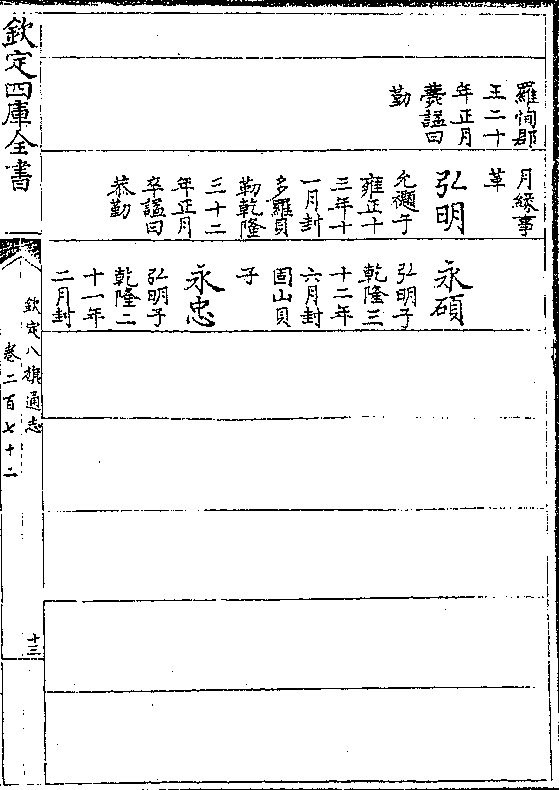 羅恂郡
王二十
年正月
薨諡曰
勤
月緣事
革
弘明
允禵子
雍正十
三年十
一月封
多羅貝
勒乾隆
三十二
年正月
卒諡曰
恭勤
永碩
弘明子
乾隆三
十二年
六月封
固山貝
子
永忠
弘明子
乾隆二
十一年
二月封
欽定四庫全書
欽定八旗通志
卷二百七十二
十三